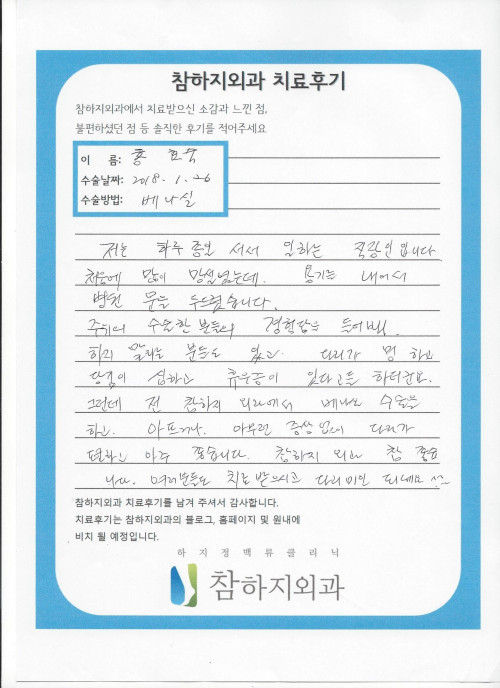 참하지외과 치료후기
참하지외과에서 치료받으신 소감과 느낀 점,
불편하셨던 점 등 솔직한 후기를 적어주세요
이 름: 홍 효숙
수술날짜: 2018. 1. 26
수술방법: 베나실
저는 하루 종일 서서 일하는 직장인 입니다
처음에 많이 망설였는데. 용기를 내어서
병원 문을 두드렸습니다.
주위의 수술한 분들의 경험담을 들어봐.
하지 말라는 분들도 있고. 다리가 멍 하고
당김이 심하고 후유증이 있다고들 하더군요.
그런데 전 참하지 외과에서 베나실 수술을
하고. 아프거나. 아무런 증상 없이 다리가
편하고 아주 좋습니다. 참하지 외과 참 좋습
니다. 여러분들도 치료 받으시고 다리미인 되세요
참하지외과 치료후기를 남겨 주셔서 감사합니다.
치료후기는 참하지외과의 블로그, 홈페이지 및 원내에
비치 될 예정입니다.
하지정맥류클리닉
참하지외과